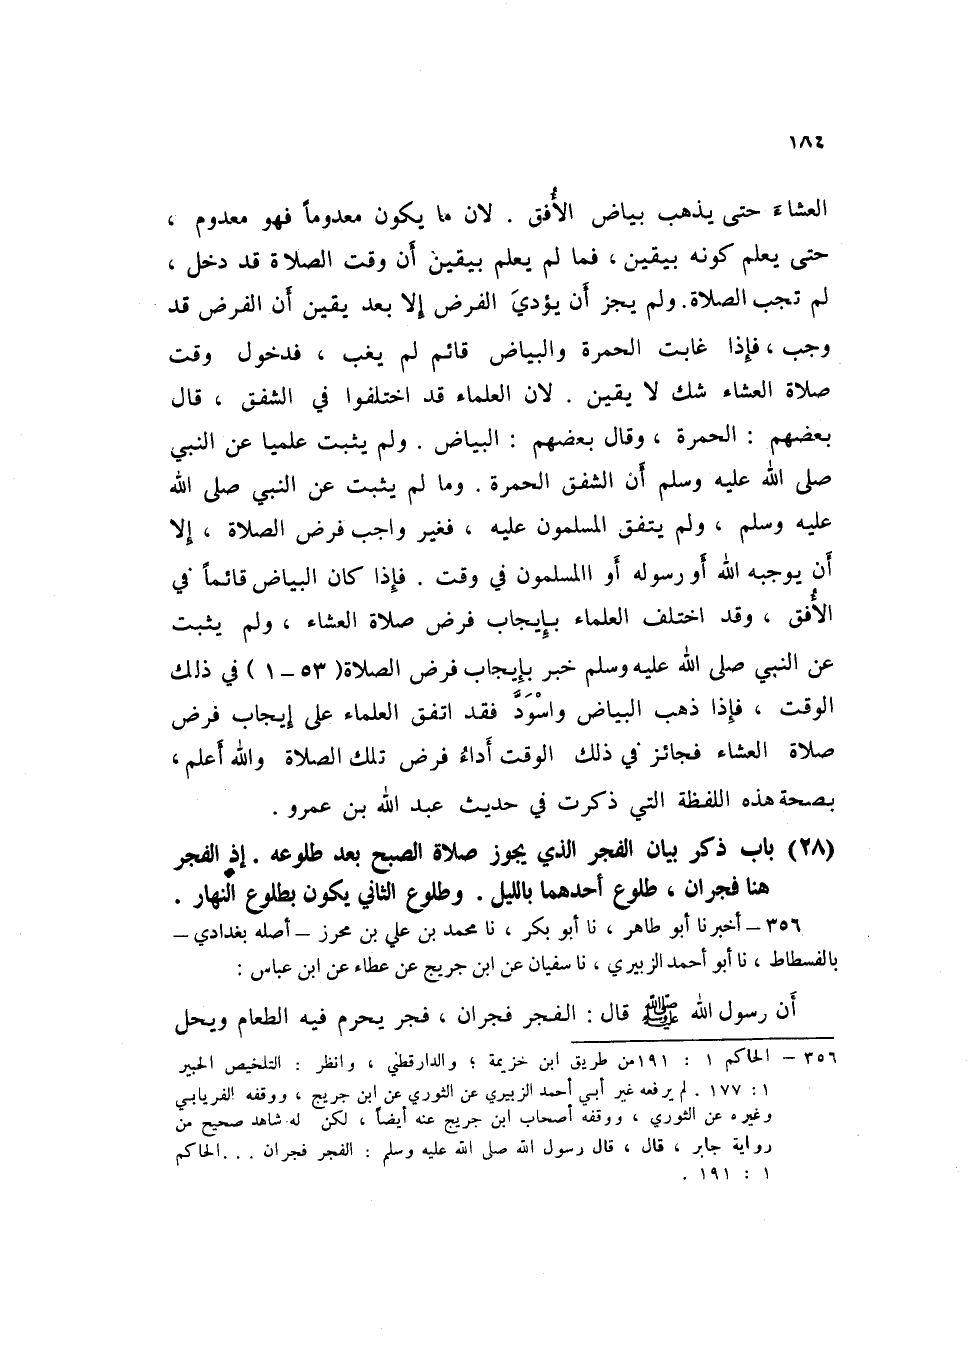 ١٨٤
العشاءَ حتى يذهب بياض الأُفق . لان ما يكون معدوماً فهو معدوم ،
حتى يعلم كونه بيقين ، فما لم يعلم بيقين أن وقت الصلاة قد دخل ،
لم تجب الصلاة. ولم يجز أن يؤديَ الفرض إلا بعد يقين أن الفرض قد
وجب ، فإذا غابت الحمرة والبياض قائم لم يغب ، فدخول وقت
صلاة العشاء شك لا يقين . لان العلماء قد اختلفوا في الشفق ، قال
بعضهم : الحمرة ، وقال بعضهم : البياض . ولم يثبت علميا عن النبي
صلى الله عليه وسلم أن الشفق الحمرة . وما لم يثبت عن النبي صلى الله
عليه وسلم ، ولم يتفق المسلمون عليه ، فغير واجب فرض الصلاة ، إلا
أن يوجبه الله أو رسوله أو االمسلمون في وقت . فإذا كان البياض قائماً في
الأُفق ، وقد اختلف العلماء بإيجاب فرض صلاة العشاء ، ولم يثبت
عن النبي صلى الله عليه وسلم خبر بإيجاب فرض الصلاة( ٥٣ – ١ ) في ذلك
الوقت ، فإذا ذهب البياض واسْوَدَّ فقد اتفق العلماء على إيجاب فرض
صلاة العشاء فجائز في ذلك الوقت أداءُ فرض تلك الصلاة والله أعلم ،
بصحة هذه اللفظة التي ذكرت في حديث عبد الله بن عمرو .
(٢٨) باب ذكر بيان الفجر الذي يجوز صلاة الصبح بعد طلوعه . إذ الفجر
هنا فجران ، طلوع أحدهما بالليل . وطلوع الثاني يكون بطلوع النهار .
٣٥٦ – أخبرنا أبو طاهر ، نا أبو بكر ، نا محمد بن علي بن محرز – أصله بغدادي –
بالفسطاط ، نا أبو أحمد الزبيري ، نا سفيان عن ابن جريج عن عطاء عن ابن عباس :
أن رسول الله ﷺ قال : الفجر فجران ، فجر يحرم فيه الطعام ويحل
٣٥٦ – الحاكم ١ : ١٩١من طريق ابن خزيمة ؛ والدارقطني ، وانظر : التلخيص الحبير
١ : ١٧٧ . لم يرفعه غير أبي أحمد الزبيري عن الثوري عن ابن جريج ، ووقفه الفريابي
وغيره عن الثوري ، ووقفه أصحاب ابن جريج عنه أيضاً ، لكن له شاهد صحيح من
رواية جابر ، قال ، قال رسول الله صلى الله عليه وسلم : الفجر فجران . . .الحاكم
١ : ١٩١ .